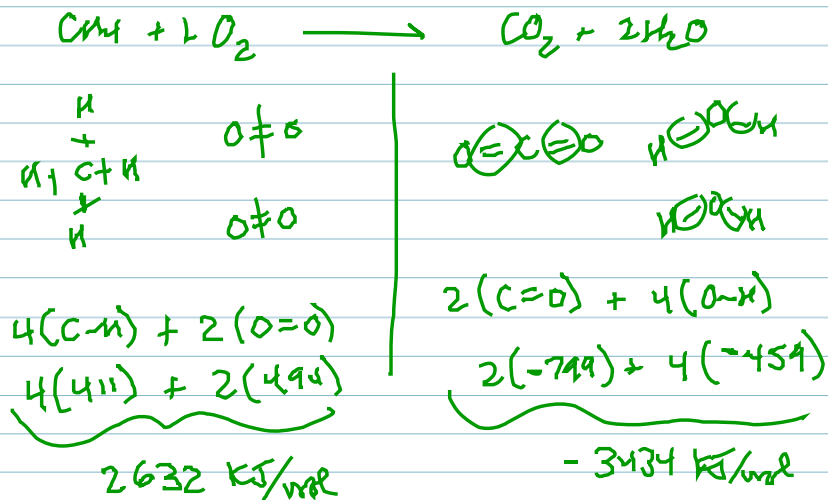 CH4 + 2 O2 → CO2 + 2H2O
H
H C H
H
O=O
O=O
O=C=O
H-O-H
H-O-H
4(C-H) + 2(O=O)
4(411) + 2(494)
2632 KJ/mol
2(C=O) + 4(O-H)
2(-799) + 4(-459)
-3434 KJ/mol